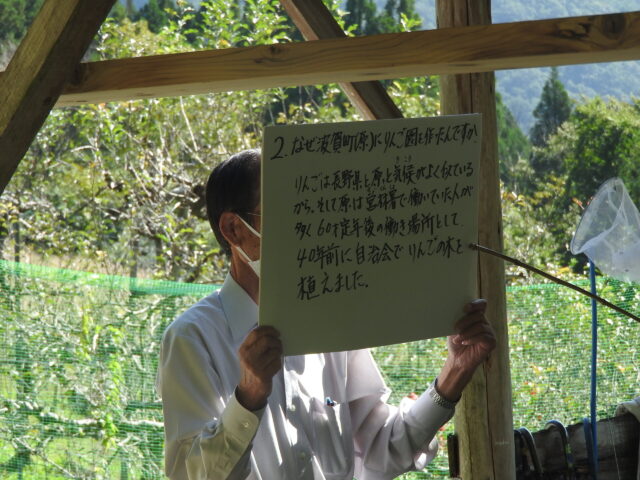 2. なぜ波賀町(原)にりんご園を作ったんですか?
りんごは長野県と原と気候がよく似ている
きこう
から、そして原は営林署で働いていた人が
多く60才定年後の働き場所として
40年前に自治会でりんごの木を
植えました。